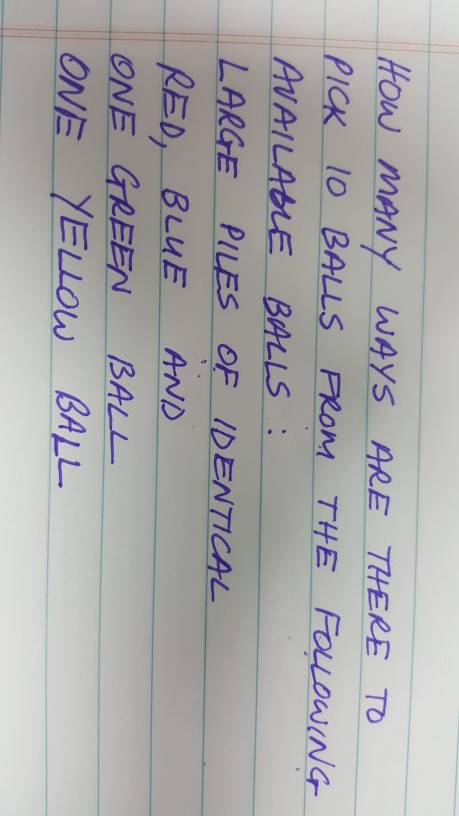 HOW MANY WAYS ARE THERE TO
PICK 10 BALLS FROM THE FOLLOWING
AVAILABLE BALLS:
LARGE PILES OF IDENTICAL
RED, BLUE AND
ONE GREEN BALL
ONE YELLOW BALL